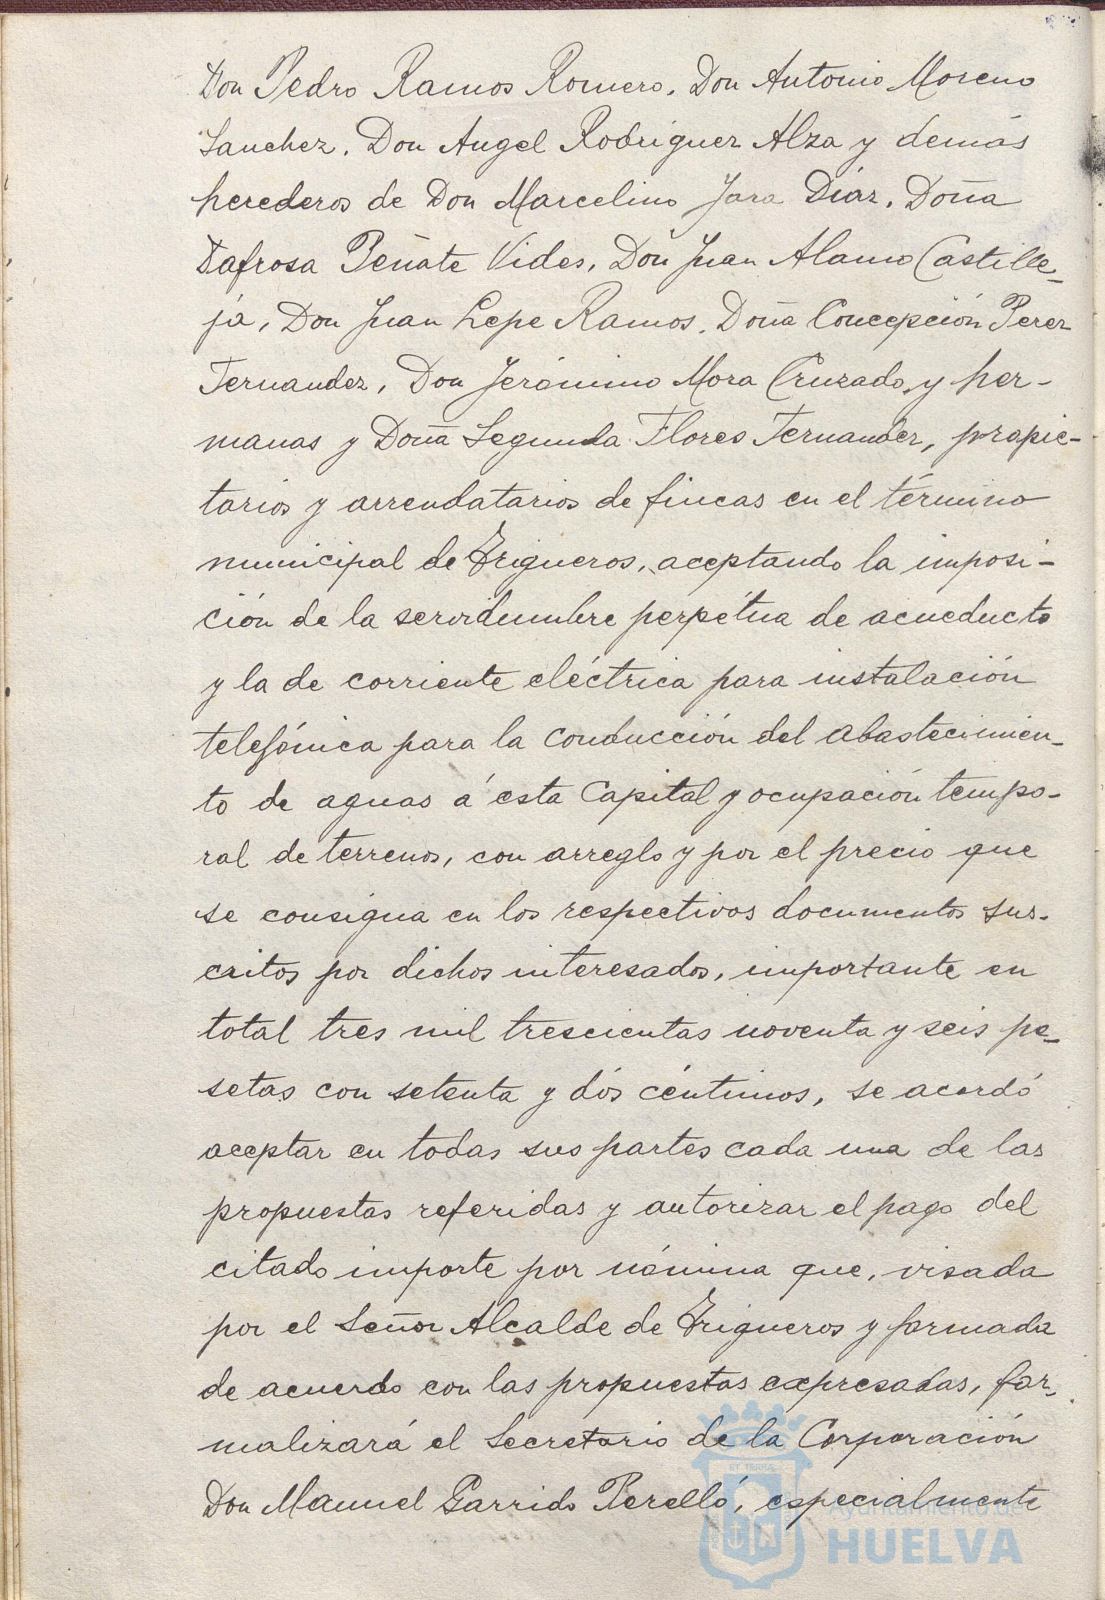 Don Pedro Ramos Romero, Don Antonio Moreno
Sanchez, Don Angel Rodriguez Alza y demás
herederos de Don Marcelino Jara Diaz, Doña
Dafrosa Peñate Vides, Don Juan Alamo Castille-
ja, Don Juan Lepe Ramos, Doña Concepción Perez
Fernandez, Don Jerónimo Mora Cruzado, y her-
manas y Doña Segunda Flores Fernandez, propie-
tarios y arrendatarios de fincas en el término
municipal de Trigueros, aceptando la imposi-
ción de la servidumbre perpétua de acueducto
y la de corriente eléctrica para instalación
telefónica para la conducción del abastecimien-
to de aguas á esta Capital y ocupación tempo-
ral de terrenos, con arreglo y por el precio que
se consigna en los respectivos documentos sus-
critos por dichos interesados, importante en
total tres mil trescientas noventa y seis pe-
setas con setenta y dós céntimos, se acordó
aceptar en todas sus partes cada una de las
propuestas referidas y autorizar el pago del
citado importe por nómina que, visada
por el Señor Alcalde de Trigueros y formada
de acuerdo con las propuestas expresadas, for-
malizará el Secretario de la Corporación
Don Manuel Garrido Perelló, especialmente
Ayuntamiento de
HUELVA